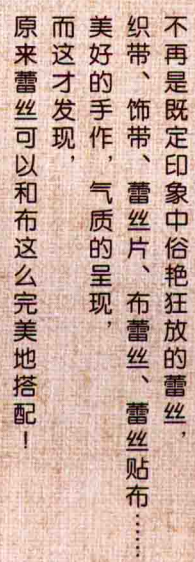 不再是既定印象中俗艳狂放的蕾丝，
织带、饰带、蕾丝片、布蕾丝、蕾丝贴布……
美好的手作，气质的呈现，
而这才发现，
原来蕾丝可以和布这么完美地搭配！